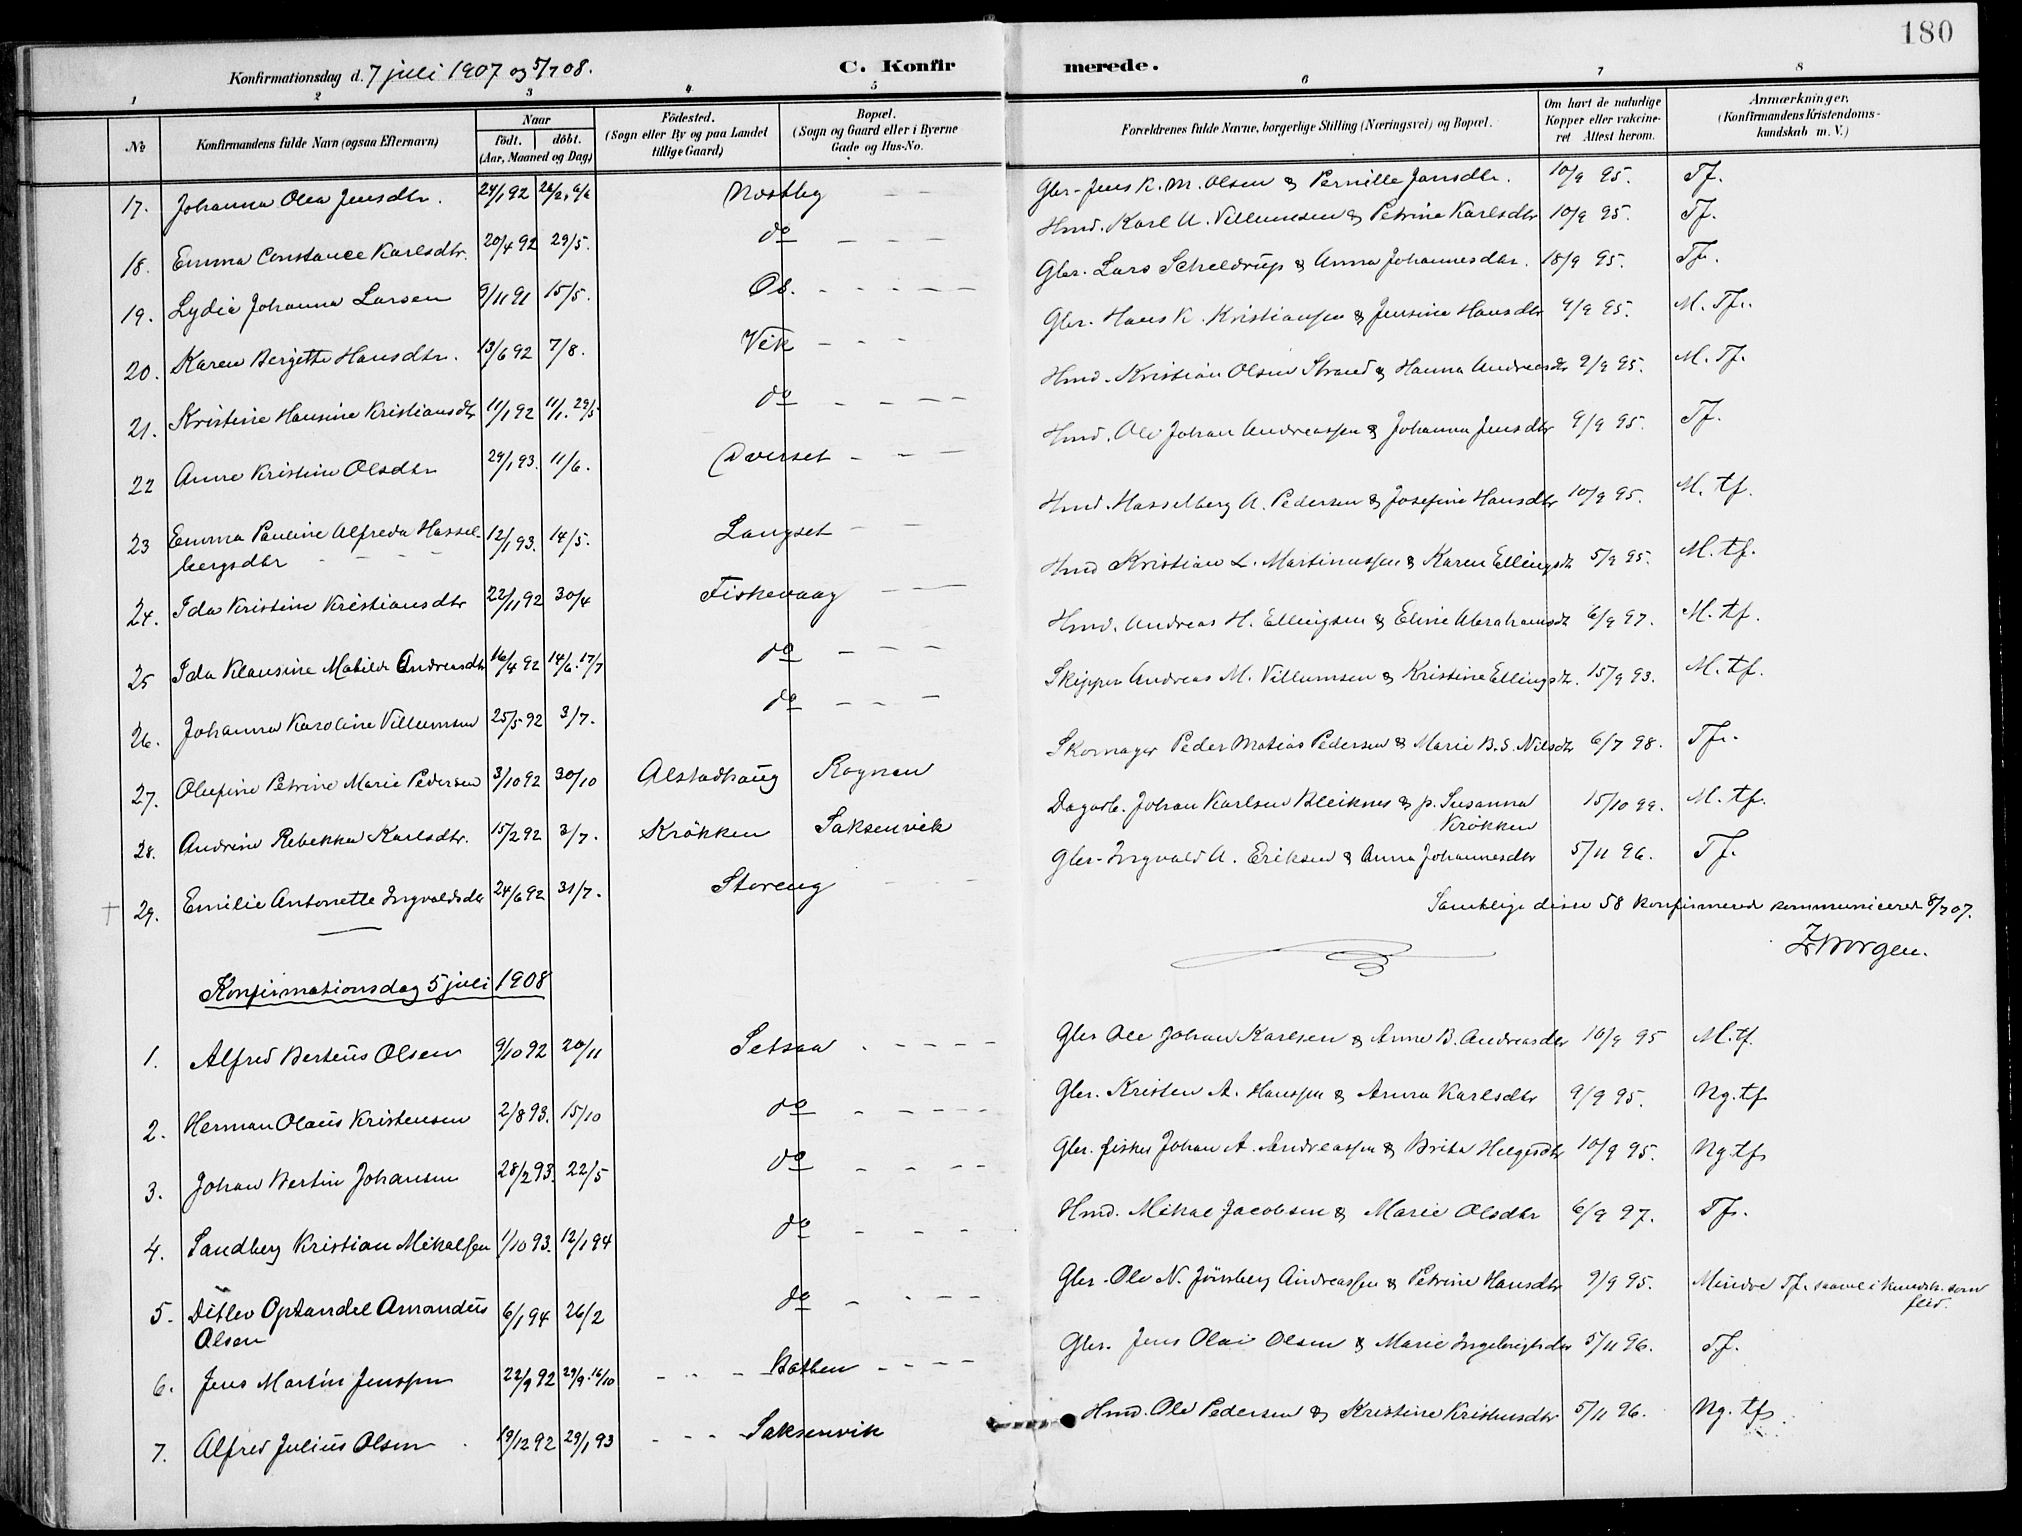 180
Konfirmationsdag d. 7 juli 1907 og 5/7 08. C. Konfir merede.
1 2 3 4 5 6 7 8
№ Konfirmandens fulde Navn (ogsaa Efternavn) Naar født. døbt. (Aar, Maaned og Dag) Fødested. (Sogn eller By og paa Landet tillige Gaard) Bopæl. (Sogn og Gaard eller i Byerne Gade og Hus-No. Forældrenes fulde Navne, borgerlige Stilling (Næringsvei) og Bopæl. Om havt de naturlige Kopper eller vakcineret Attest herom. Anmærkninger. (Konfirmandens Kristendomskundskab m. V.)
17. Johanna Olea Jensdtr. 24/1 92 Nostby Gbr. Jens K. M. Olsen & Pernille Jansdtr. 10/9 95. Tf.
18. Emma Constance Karlsdtr. 20/4 92 29/5. do Hmd. Karl A. Villumsen & Petrine Karlsdtr 10/9 95. Tf.
19. Lydia Johanna Larsen 9/11 91 15/5. Os. Gbr. Lars Scheldrup & Anna Johannesdtr. 18/9 95. Tf.
20. Karen Bergitte Hansdtr. 13/6 92 7/8. Vik Gbr. Hans K. Kristiansen & Jensine Hansdtr 9/9 95. M. Tf.
21. Kristine Hansine Kristiansdtr 11/1 92 11/1. 29/5 do Hmd. Kristian Olsen Strand & Hanna Andreasdtr 9/9 95. M. Tf.
22 Anne Kristine Olsdtr 29/1 93. 11/6. Hmd. Ole Johan Andreassen & Johanna Jensdtr 9/9 95. Tf.
23 Emma Pauline Alfreda Hasselbergsdtr 12/1 93. 14/5. Langset Hmd. Hasselberg A. Pedersen & Josefine Hansdtr 10/9 95. M. tf.
24. Ida Kristine Kristiansdtr 22/11 92 30/4 Fiskevaag Hmd Kristian L. Martinussen & Karen Ellingsdtr 5/9 95. M. tf.
25 Ida Klausine Matilde Andreasdtr 16/4 92 14/6. 17/7 do Hmd. Andreas H. Ellingsen & Eline Abrahamsdtr 6/9 97. M. tf.
26. Johanna Karoline Villumsen 25/5 92 3/7. do Skipper Andreas M. Villumsen & Kristine Ellingsdtr. 15/9 93. M. tf.
27. Olufine Petrine Marie Pedersen 3/10 92 30/10 Alstadhaug Rognan Skomager Peder Matias Pedersen & Marie B. S. Nilsdtr 6/7 98. Tf.
28. Andrine Rebekka Karlsdtr. 15/2 92 3/7. Krökken Saksenvik Dagarb. Johan Karlsen Bleiknes & p. Susanna Krökken 15/10 99. M. tf.
29. Emilie Antonette Ingvaldsdtr 24/6 92 31/7. Storeng Gbr. Ingvald A. Eriksen & Anna Johannesdtr 5/11 96. Tf.
Samtlige disse 58 konfirmered kommuniceret 8/7 07.
Borgen.
Konfirmationsdag 5 juli 1908
1. Alfred Berteus Olsen 9/10 92 20/11 Setsaa Gbr Ole Johan Karlsen & Anne B. Andreasdtr 10/9 95 M. tf.
2. Herman Olaus Kristensen 2/8 93. 15/10 do Gbr. Kristen A. Hanssen & Anna Karlsdtr 9/9 95. Ng. tf
3. Johan Bertin Johansen 28/2 93. 22/5 do Gbr. fisker Johan A. Andreassen & Brita Helgesdtr 10/9 95. Ng. tf
4. Sandberg Kristian Mikalsen 1/10 93. 12/1 94 do Hmd. Mikal Jacobsen & Marie Olsdtr 6/9 97. Tf.
5. Ditlev Optandel Amandus Olsen 6/1 94 26/2 do Gbr. Ole N. Jönsberg Andreassen & Petrine Hansdtr 9/9 95. Mindre Tf. saavel i kundsk. som flid.
6. Jens Martin Jenssen 22/9 92 29/9. 16/10 Botnen Gbr. Jens Olai Olsen & Marie Ingebrigtsdtr 5/11 96. Tf.
7. Alfred Julius Olsen 19/12 92 29/1 93 Saksenvik Hmd. Ole Pedersen & Kristine Kristensdtr 5/11 96. Ng. tf.